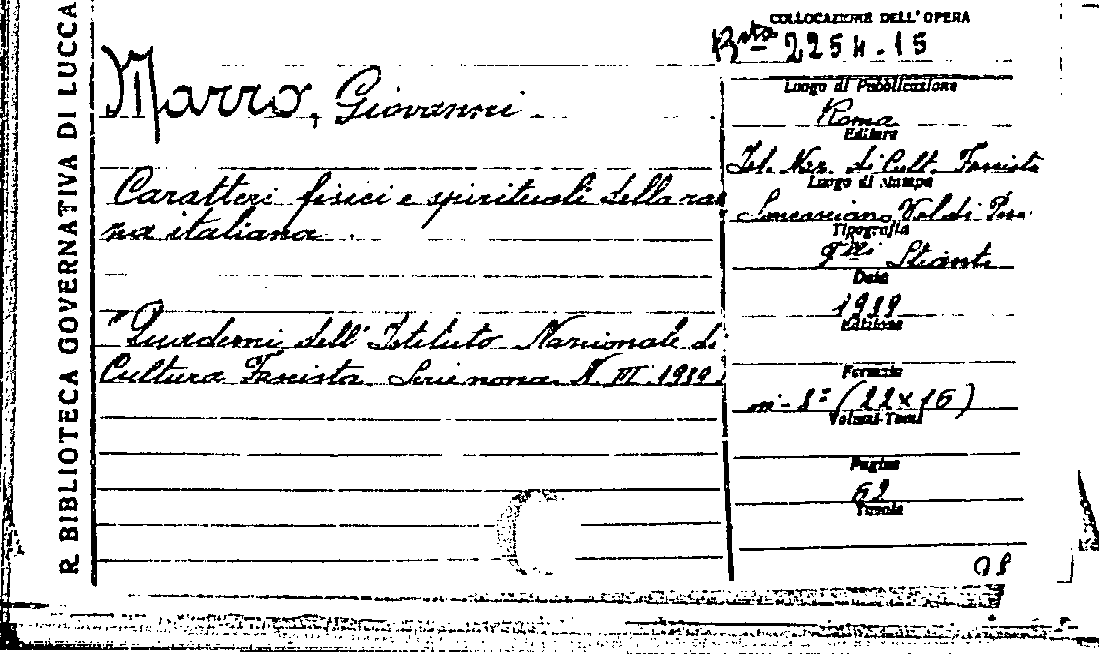 R. BIBLIOTECA GOVERNATIVA DI LUCCA
COLLOCAZIONE DELL'OPERA
Bsta 2254.15
Marro, Giovanni
Caratteri fisici e spirituali della raz
za italiana.
"Quaderni dell'Istituto Nazionale di
Cultura Fascista. Serie nona. N. VI. 1939.
Luogo di Pubblicazione
Roma
Editore
Ist. Naz. di Cult. Fascista
Luogo di stampa
Sancasciano Val di Pesa
Tipografia
F.lli Stianti
Data
1939
Edizione
Formato
in-8° (22x15)
Volumi-Tomi
Pagine
62
Tavole